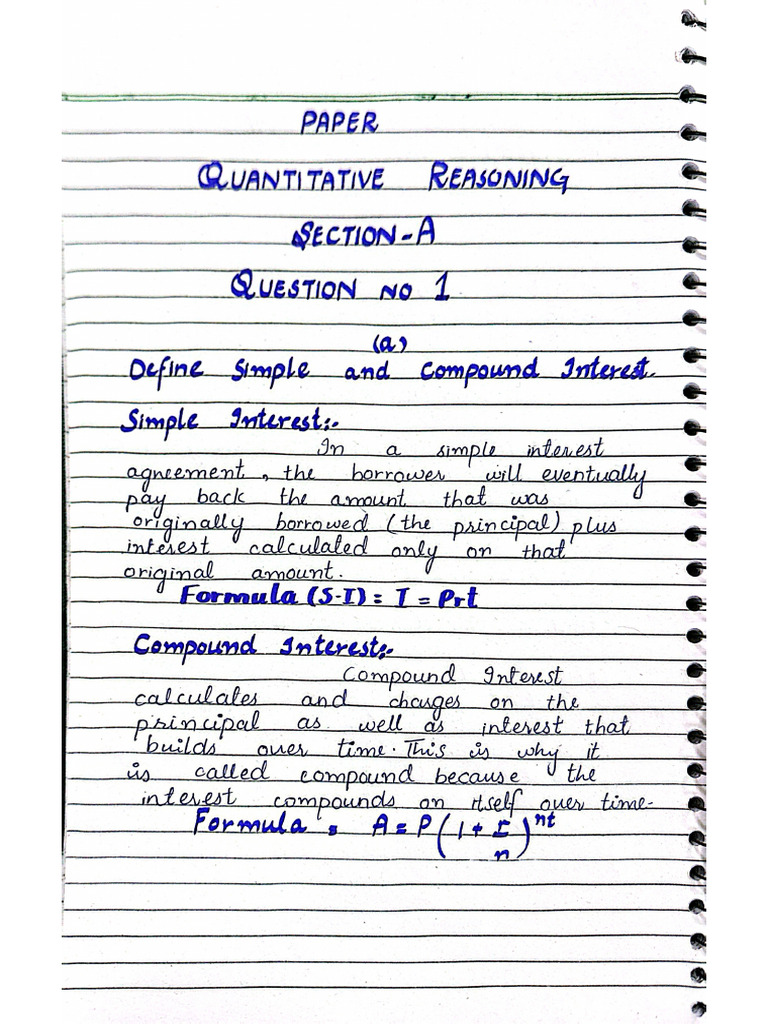 PAPER
QUANTITATIVE REASONING
SECTION-A
QUESTION NO 1
(a)
Define Simple and Compound Interest.
Simple Interest:-
In a simple interest
agreement, the borrower will eventually
pay back the amount that was
originally borrowed (the principal) plus
interest calculated only on that
original amount.
Formula (S-I) = I = Prt
Compound Interest:-
Compound Interest
calculates and charges on the
principal as well as interest that
builds over time. This is why it
is called compound because the
interest compounds on itself over time.
Formula = A = P(1 + r/n)^nt